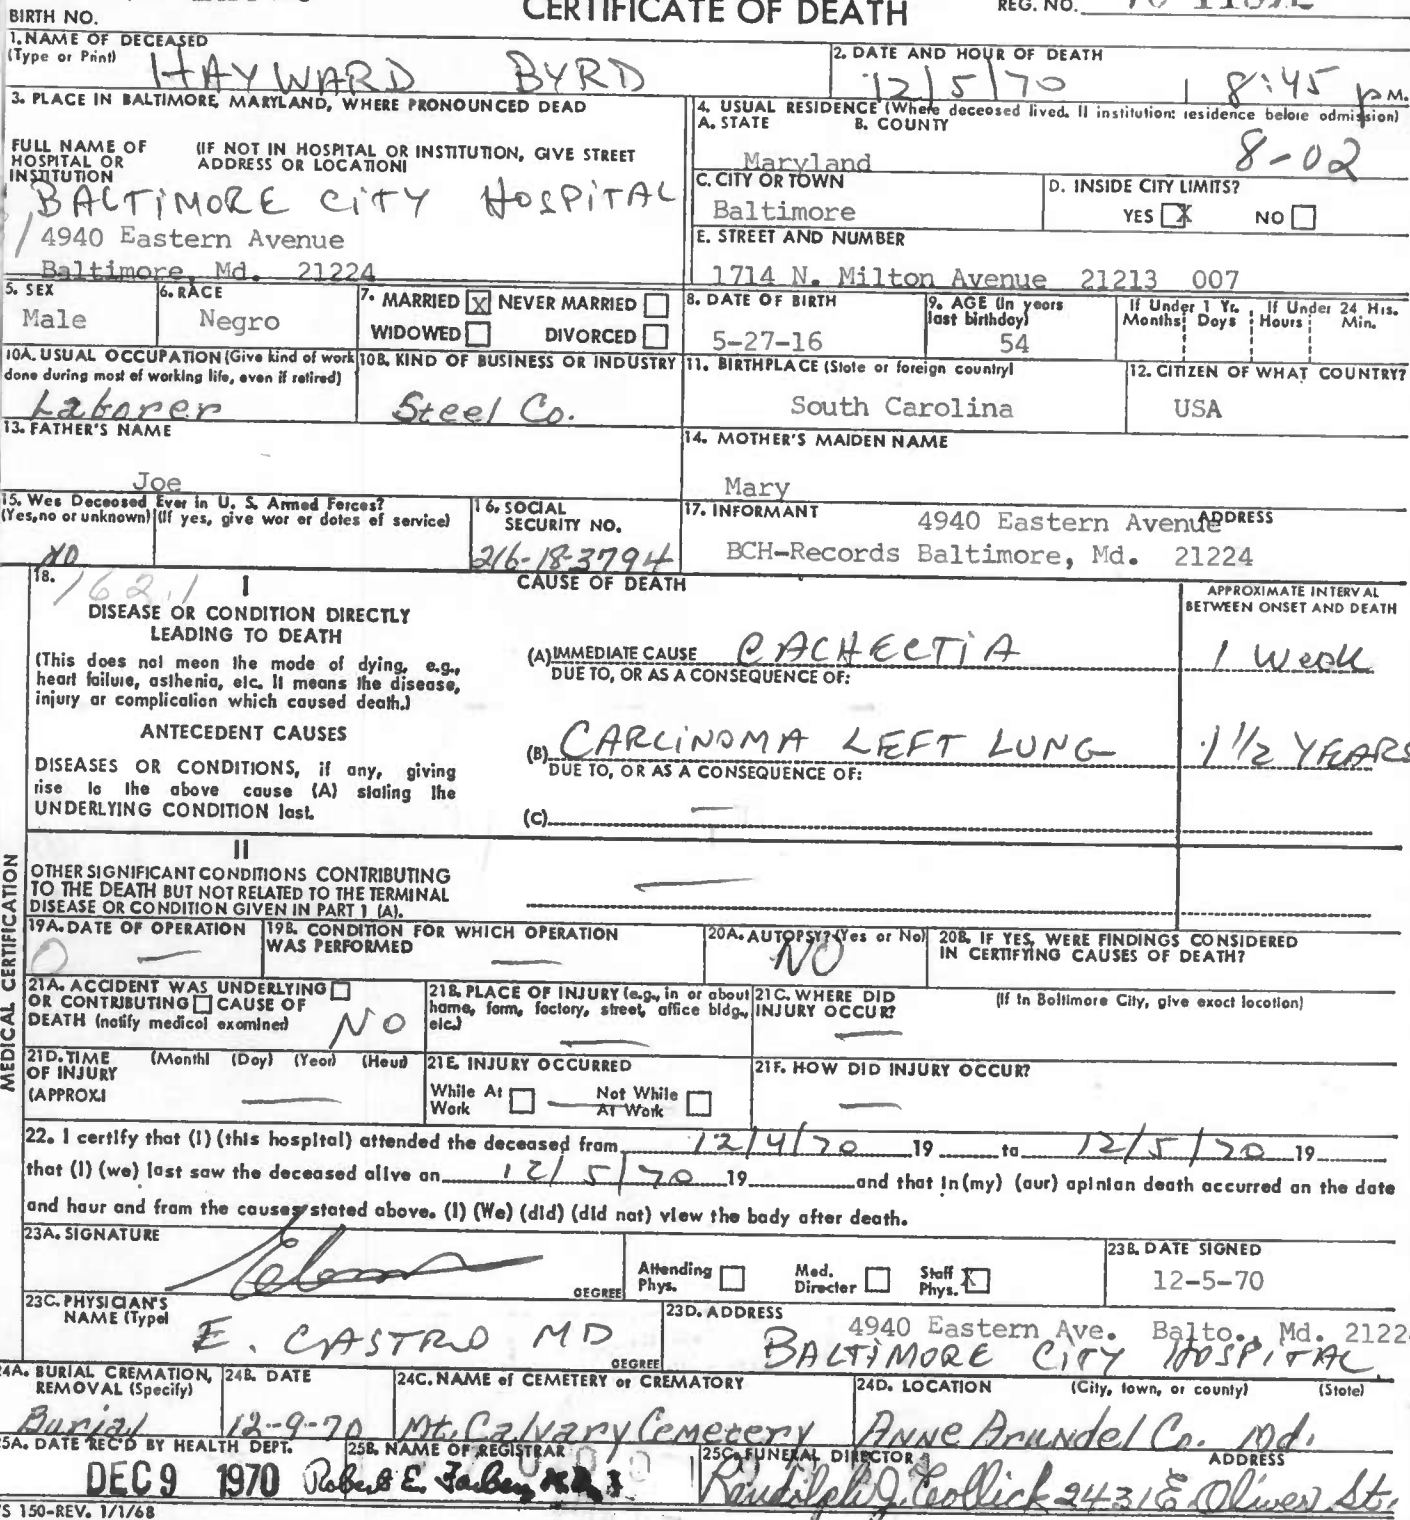 BIRTH NO.
CERTIFICATE OF DEATH
REG. NO.
1. NAME OF DECEASED
(Type or Print)
HAYWARD BYRD
2. DATE AND HOUR OF DEATH
12/5/70 8:45 p M.
3. PLACE IN BALTIMORE, MARYLAND, WHERE PRONOUNCED DEAD
FULL NAME OF HOSPITAL OR INSTITUTION
(IF NOT IN HOSPITAL OR INSTITUTION, GIVE STREET ADDRESS OR LOCATION)
BALTIMORE CITY HOSPITAL
4940 Eastern Avenue
Baltimore, Md. 21224
4. USUAL RESIDENCE (Where deceased lived. If institution: residence before admission)
A. STATE B. COUNTY
Maryland 8-02
C. CITY OR TOWN
Baltimore
D. INSIDE CITY LIMITS?
YES X NO
E. STREET AND NUMBER
1714 N. Milton Avenue 21213 007
5. SEX
Male
6. RACE
Negro
7. MARRIED X NEVER MARRIED
WIDOWED DIVORCED
8. DATE OF BIRTH
5-27-16
9. AGE (In years last birthday)
54
If Under 1 Yr. Months Days
If Under 24 Hrs. Hours Min.
10A. USUAL OCCUPATION (Give kind of work done during most of working life, even if retired)
Laborer
10B. KIND OF BUSINESS OR INDUSTRY
Steel Co.
11. BIRTHPLACE (State or foreign country)
South Carolina
12. CITIZEN OF WHAT COUNTRY?
USA
13. FATHER'S NAME
Joe
14. MOTHER'S MAIDEN NAME
Mary
15. Was Deceased Ever in U. S. Armed Forces?
(Yes, no or unknown) (If yes, give war or dates of service)
NO
16. SOCIAL SECURITY NO.
216-18-3794
17. INFORMANT ADDRESS
4940 Eastern Avenue
BCH-Records Baltimore, Md. 21224
18. 162.1
CAUSE OF DEATH
APPROXIMATE INTERVAL BETWEEN ONSET AND DEATH
I
DISEASE OR CONDITION DIRECTLY
LEADING TO DEATH
(This does not mean the mode of dying, e.g.,
heart failure, asthenia, etc. It means the disease,
injury or complication which caused death.)
(A) IMMEDIATE CAUSE CACHECTIA 1 Week
DUE TO, OR AS A CONSEQUENCE OF:
ANTECEDENT CAUSES
DISEASES OR CONDITIONS, if any, giving
rise to the above cause (A) stating the
UNDERLYING CONDITION last.
(B) CARCINOMA LEFT LUNG 1 1/2 YEARS
DUE TO, OR AS A CONSEQUENCE OF:
(C) —
II
OTHER SIGNIFICANT CONDITIONS CONTRIBUTING
TO THE DEATH BUT NOT RELATED TO THE TERMINAL
DISEASE OR CONDITION GIVEN IN PART 1 (A).
—
MEDICAL CERTIFICATION
19A. DATE OF OPERATION
0 —
19B. CONDITION FOR WHICH OPERATION WAS PERFORMED
—
20A. AUTOPSY? (Yes or No)
NO
20B. IF YES, WERE FINDINGS CONSIDERED IN CERTIFYING CAUSES OF DEATH?
21A. ACCIDENT WAS UNDERLYING
OR CONTRIBUTING CAUSE OF
DEATH (notify medical examiner)
NO
21B. PLACE OF INJURY (e.g., in or about home, farm, factory, street, office bldg., etc.)
—
21C. WHERE DID INJURY OCCUR?
(If in Baltimore City, give exact location)
—
21D. TIME OF INJURY (APPROX.)
(Month) (Day) (Year) (Hour)
—
21E. INJURY OCCURRED
While At Work — Not While At Work
21F. HOW DID INJURY OCCUR?
—
22. I certify that (I) (this hospital) attended the deceased from 12/4/70 19 to 12/5/70 19
that (I) (we) last saw the deceased alive on 12/5/70 19 and that in (my) (our) opinion death occurred on the date
and hour and from the causes stated above. (I) (We) (did) (did not) view the body after death.
23A. SIGNATURE
DEGREE
Attending Phys. Med. Director Staff Phys. X
23B. DATE SIGNED
12-5-70
23C. PHYSICIAN'S NAME (Type)
E. CASTRO MD
DEGREE
23D. ADDRESS
4940 Eastern Ave. Balto., Md. 2122
BALTIMORE CITY HOSPITAL
24A. BURIAL CREMATION, REMOVAL (Specify)
Burial
24B. DATE
12-9-70
24C. NAME of CEMETERY or CREMATORY
Mt. Calvary Cemetery
24D. LOCATION (City, town, or county) (State)
Anne Arundel Co. Md.
25A. DATE REC'D BY HEALTH DEPT.
DEC 9 1970
25B. NAME OF REGISTRAR
Robert E. Farber, M.D.
25C. FUNERAL DIRECTOR ADDRESS
Randolph J. Collick 2431 E. Oliver St.
S 150-REV. 1/1/68